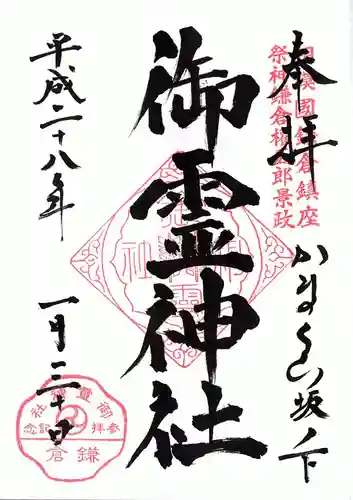 奉拝
相模國鎌倉鎮座
祭神鎌倉権五郎景政
かまくら坂ノ下
御霊神社
平成二十八年
一月三十日
御霊神社
参拝記念
鎌倉